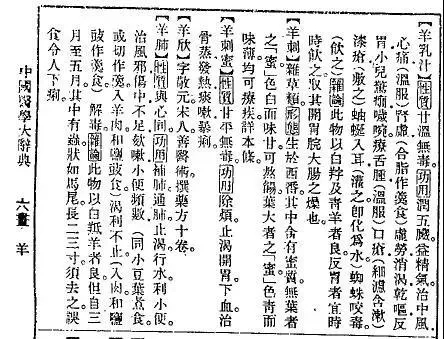 【羊乳汁】性質甘溫無毒。功用潤五臟。益精氣。治中風
心痛。(溫服)腎虛。(合脂作羹食)虛勞消渴。乾嘔反
胃。小兒驚癇。噦啘。療舌腫。(溫服)口瘡。(和濃含漱)
漆瘡。(敷之)蚰蜒入耳。(灌之卽化爲水。)蜘蛛咬毒
(飮之)雜論此物以白羖及靑羊者良。反胃者宜時
時飮之。取其開胃脘大腸之燥也。
【羊刺】雜草類。形態生於西番。其中含有蜜質。無葉者
之「蜜」色白而味甘。可熬餳。葉大者之「蜜」色靑而
味薄。均可療疾。詳本條。
【羊刺蜜】性質甘平無毒。功用除煩止渴。開胃下血。治
骨蒸發熱。痰嗽暴痢。
【羊欣】字敬元。宋人。善醫術。撰藥方十卷。
【羊肺】性質與心同。功用補肺。通肺。止渴。行水。利小便。
治風邪傷中不足。欬嗽。小便頻數。(同小豆葉煮食
或切作羹。入羊肉和鹽豉食)渴利不止。(入肉和鹽
豉作羹食)解毒。雜論此物以白羝羊者良。但自三
月至五月。其中有蟲狀如馬尾。長二三寸。須去之。誤
食令人下痢。
中國醫學大辭典 六畫 羊